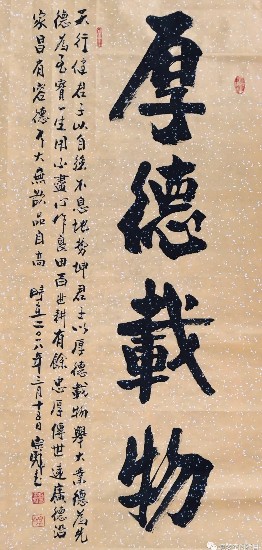 厚德載物
天行健君子以自强不息地势坤君子以厚德載物舉大業德為先
德為至寶一生用不盡心作良田百世耕有餘忠厚傳世遠廣德治
家昌有容德乃大無欲品自高 時在二〇一八年三月十五日